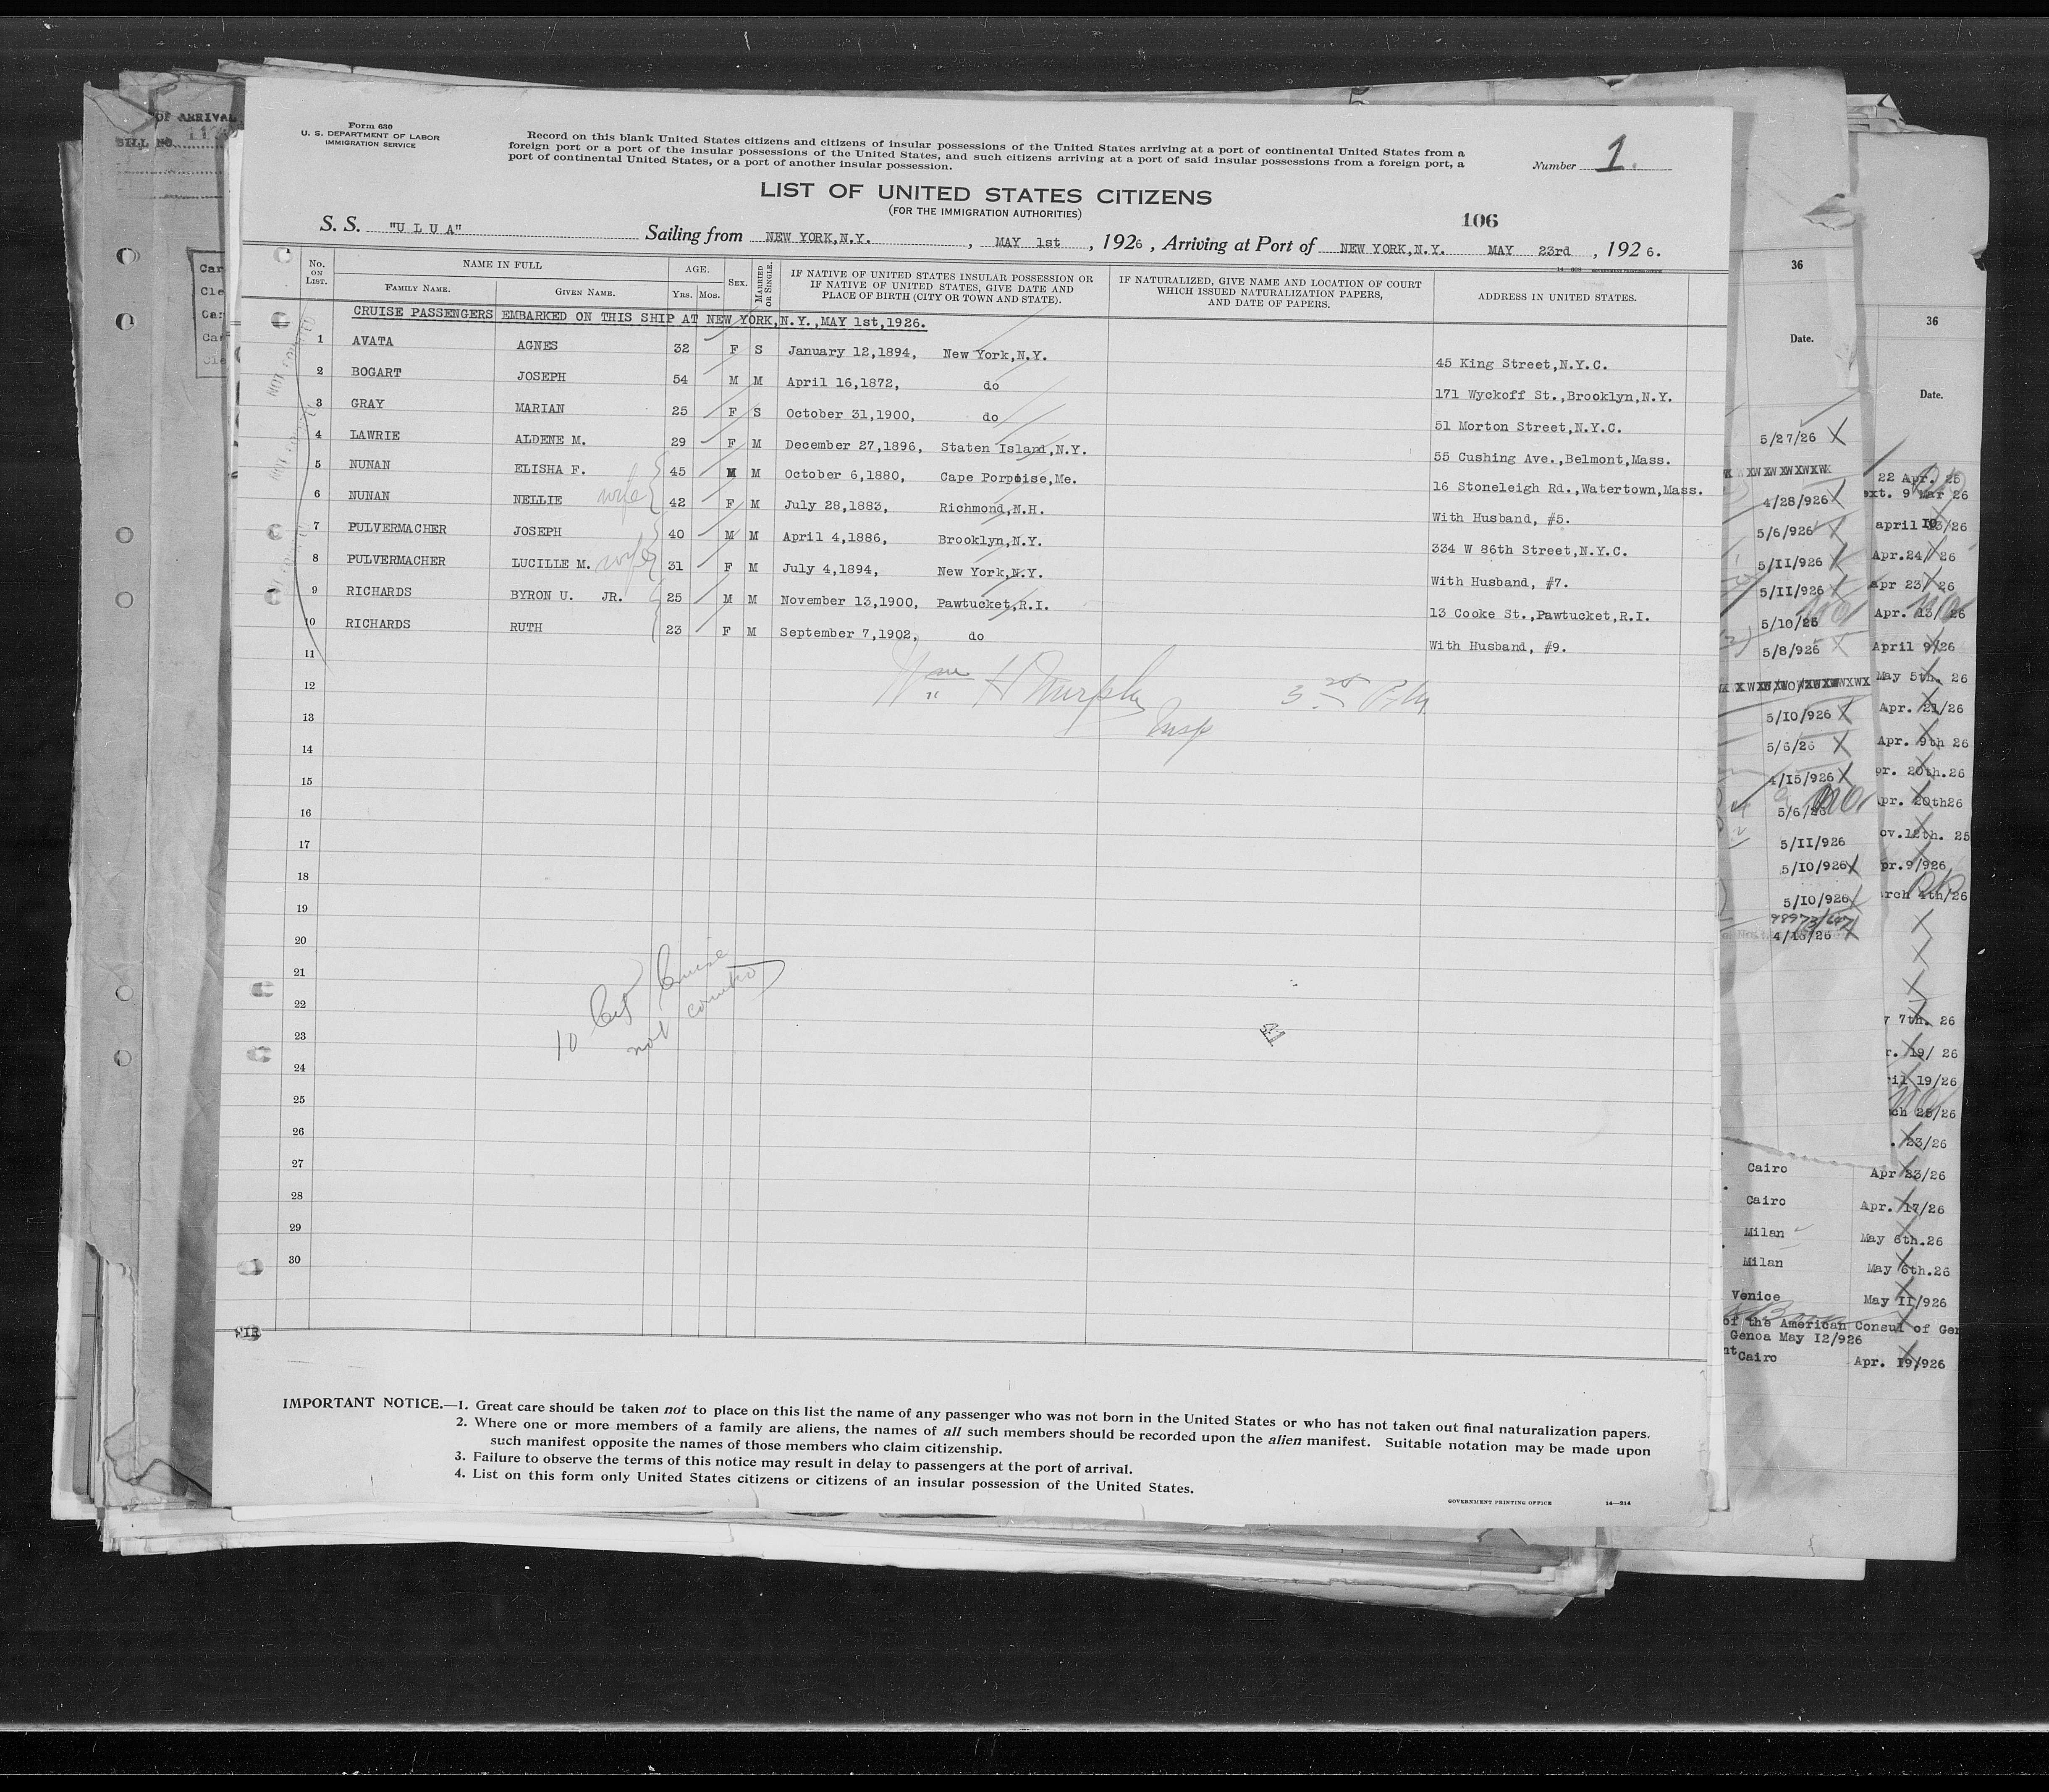 Form 630
U. S. DEPARTMENT OF LABOR
IMMIGRATION SERVICE
Record on this blank United States citizens and citizens of insular possessions of the United States arriving at a port of continental United States from a
foreign port or a port of the insular possessions of the United States, and such citizens arriving at a port of said insular possessions from a foreign port, a
port of continental United States, or a port of another insular possession.
Number 1
LIST OF UNITED STATES CITIZENS
(FOR THE IMMIGRATION AUTHORITIES)
106
S. S. "U L U A" Sailing from NEW YORK,N.Y. , MAY 1st , 1926 , Arriving at Port of NEW YORK,N.Y. MAY 23rd , 1926.
No. ON LIST. NAME IN FULL FAMILY NAME. GIVEN NAME. AGE. Yrs. Mos. SEX. MARRIED OR SINGLE. IF NATIVE OF UNITED STATES INSULAR POSSESSION OR IF NATIVE OF UNITED STATES, GIVE DATE AND PLACE OF BIRTH (CITY OR TOWN AND STATE). IF NATURALIZED, GIVE NAME AND LOCATION OF COURT WHICH ISSUED NATURALIZATION PAPERS, AND DATE OF PAPERS. ADDRESS IN UNITED STATES.
CRUISE PASSENGERS EMBARKED ON THIS SHIP AT NEW YORK,N.Y.,MAY 1st,1926.
1 AVATA AGNES 32 F S January 12,1894, New York,N.Y. 45 King Street,N.Y.C.
2 BOGART JOSEPH 54 M M April 16,1872, do 171 Wyckoff St.,Brooklyn,N.Y.
3 GRAY MARIAN 25 F S October 31,1900, do 51 Morton Street,N.Y.C.
4 LAWRIE ALDENE M. 29 F M December 27,1896, Staten Island,N.Y. 55 Cushing Ave.,Belmont,Mass.
5 NUNAN ELISHA F. 45 M M October 6,1880, Cape Porpoise,Me. 16 Stoneleigh Rd.,Watertown,Mass.
6 NUNAN NELLIE wife 42 F M July 28,1883, Richmond,N.H. With Husband, #5.
7 PULVERMACHER JOSEPH 40 M M April 4,1886, Brooklyn,N.Y. 334 W 86th Street,N.Y.C.
8 PULVERMACHER LUCILLE M. wife 31 F M July 4,1894, New York,N.Y. With Husband, #7.
9 RICHARDS BYRON U. JR. 25 M M November 13,1900, Pawtucket,R.I. 13 Cooke St.,Pawtucket,R.I.
10 RICHARDS RUTH 23 F M September 7,1902, do With Husband, #9.
11
12 Wm H Murphy
Insp
13
14
15
16
17
18
19
20
21
22
23
24
25
26
27
28
29
30
10 Cit Cruise
not counted
IMPORTANT NOTICE.—1. Great care should be taken not to place on this list the name of any passenger who was not born in the United States or who has not taken out final naturalization papers.
2. Where one or more members of a family are aliens, the names of all such members should be recorded upon the alien manifest. Suitable notation may be made upon
such manifest opposite the names of those members who claim citizenship.
3. Failure to observe the terms of this notice may result in delay to passengers at the port of arrival.
4. List on this form only United States citizens or citizens of an insular possession of the United States.
GOVERNMENT PRINTING OFFICE 14—314
OF ARRIVAL
BILL NO
36
Date.
5/27/26
4/28/926
5/6/926
5/11/926
5/11/926
5/10/26
5/8/926
5/10/926
5/6/26
4/15/926
5/6/26
5/11/926
5/10/926
5/10/926
36
Date.
22 Apr. 25
ext. 9 Mar 26
Apr.24/26
Apr 23/26
Apr. 13/26
April 9/26
May 5th. 26
Apr. 21/26
Apr. 9th 26
20th.26
19/ 26
19/26
23/26
Cairo Apr 23/26
Cairo Apr. 17/26
Milan May 6th.26
Milan May 6th.26
Venice May 11/926
of the American Consul of Gen
Genoa May 12/926
Cairo Apr. 19/926